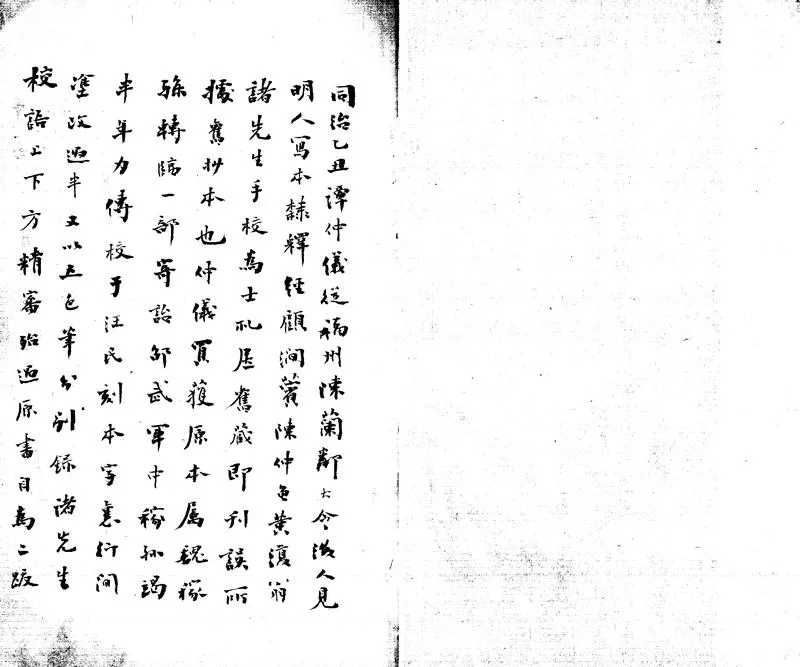 同治乙丑譚仲儀從福州陳蘭鄰大令後人見
明人寫本隸釋經顧澗薲陳仲魚黃復翁
諸先生手校為士礼居舊藏即刊誤所
據舊抄本也仲儀買獲原本屬魏稼
孫轉臨一部寄詒邵武軍中稼孫竭
半年力傳校于汪氏刻本字裏行間
塗改過半又以五色筆分別錄諸先生
校語上下方精審殆過原書目為二跋